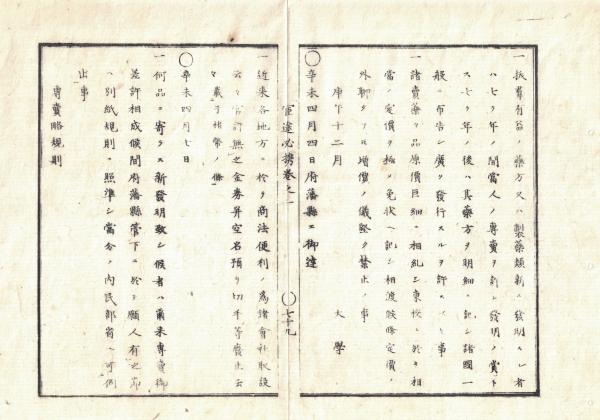 一 拔羣有益ノ藥方又ハ製藥類新ニ發明スレ者
ハ七ケ年ノ間當人ノ專賣ヲ新シ發明ノ賞下
ス七ケ年ノ後ハ其藥方ヲ明細ニ記シ諸國一
般ニ布告シ廣ク發行スルヲ許スヘキ事
一 諸賣藥ノ品原價巨細ニ相糺シ東校ニ於キ相
當ノ定價ヲ極メ免狀ヘ記シ相渡候條定價ノ
外聊タリ𪜈增價ノ儀堅ク禁止ノ事
庚午十二月 大學
◯辛未四月四日府藩縣エ御達
官途必携卷之一
◯七十九
一 近來各地方ニ於テ商法便利ノ爲諸會社取設
云々官許無之金券幷空名預リ切手等廢止云
々 載于楮幣ノ條
◯辛未四月七日
一 何品ニ寄ラス新發明致シ候者ハ爾來專賣御
差許相成候間府藩縣管下ニ於テ願人有之節
ハ別紙規則ニ照準シ當分ノ內民部省ヘ可伺
出事
專賣略規則